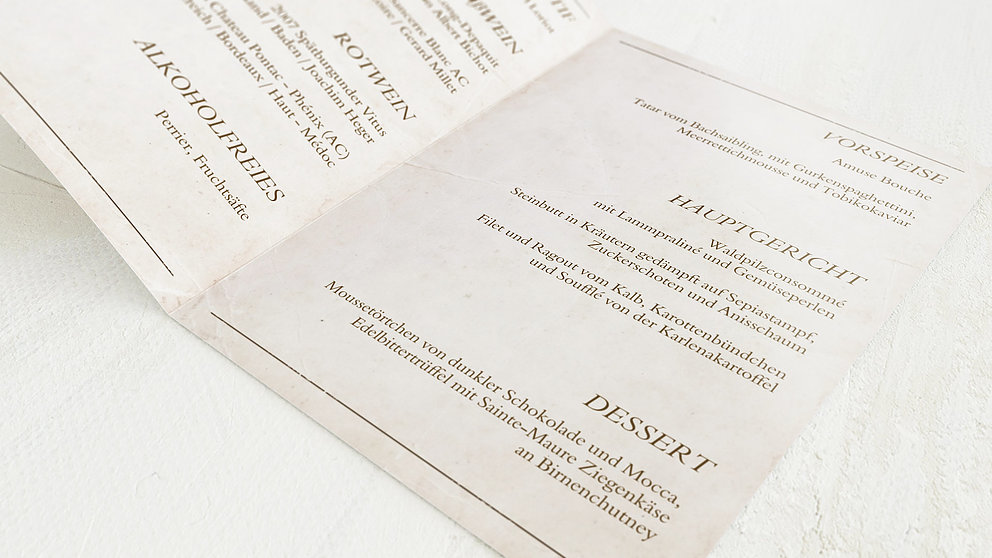 WEIN
Albert Bichot
Sancerre Blanc AC
/ Gerard Millet
ROTWEIN
2007 Spätburgunder Vitus
/ Baden / Joachim Heger
Chateau Pontac - Phénix (AC)
/ Bordeaux / Haut - Médoc
ALKOHOLFREIES
Perrier, Fruchtsäfte
VORSPEISE
Amuse Bouche
Tatar vom Bachsaibling, mit Gurkenspaghettini,
Meerrettichmousse und Tobikokaviar
HAUPTGERICHT
Waldpilzconsommé
mit Lammpraliné und Gemüseperlen
Steinbutt in Kräutern gedämpft auf Sepiastampf,
Zuckerschoten und Anisschaum
Filet und Ragout vom Kalb, Karottenbündchen
und Soufflé von der Karlenakartoffel
DESSERT
Moussetörtchen von dunkler Schokolade und Mocca,
Edelbittertrüffel mit Sainte-Maure Ziegenkäse
an Birnenchutney